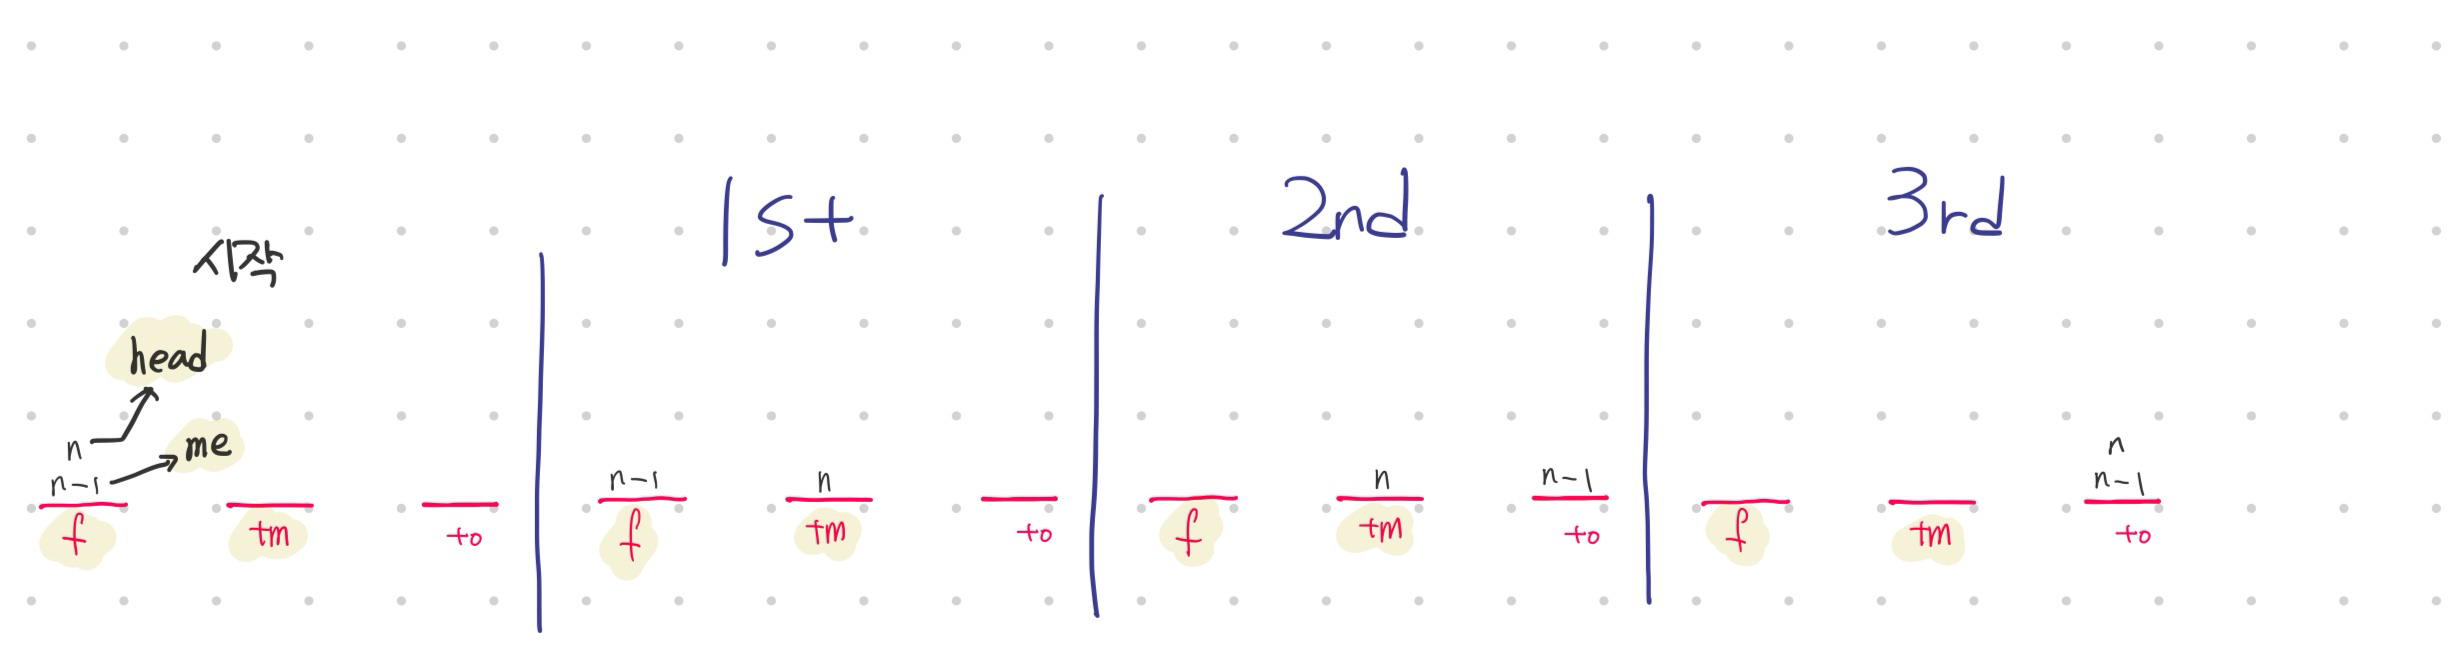 시작
head
n
me
n-1
f tm to
1st
n-1 n
f tm to
2nd
n n-1
f tm to
3rd
n
n-1
f tm to